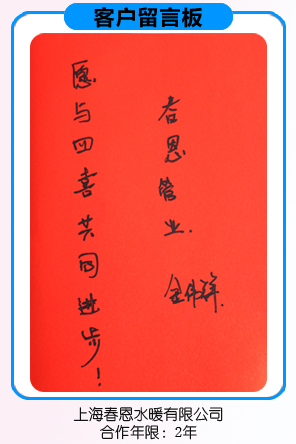 客户留言板
愿与四喜共同进步!
春恩管业.
金伟祥.
上海春恩水暖有限公司
合作年限：2年